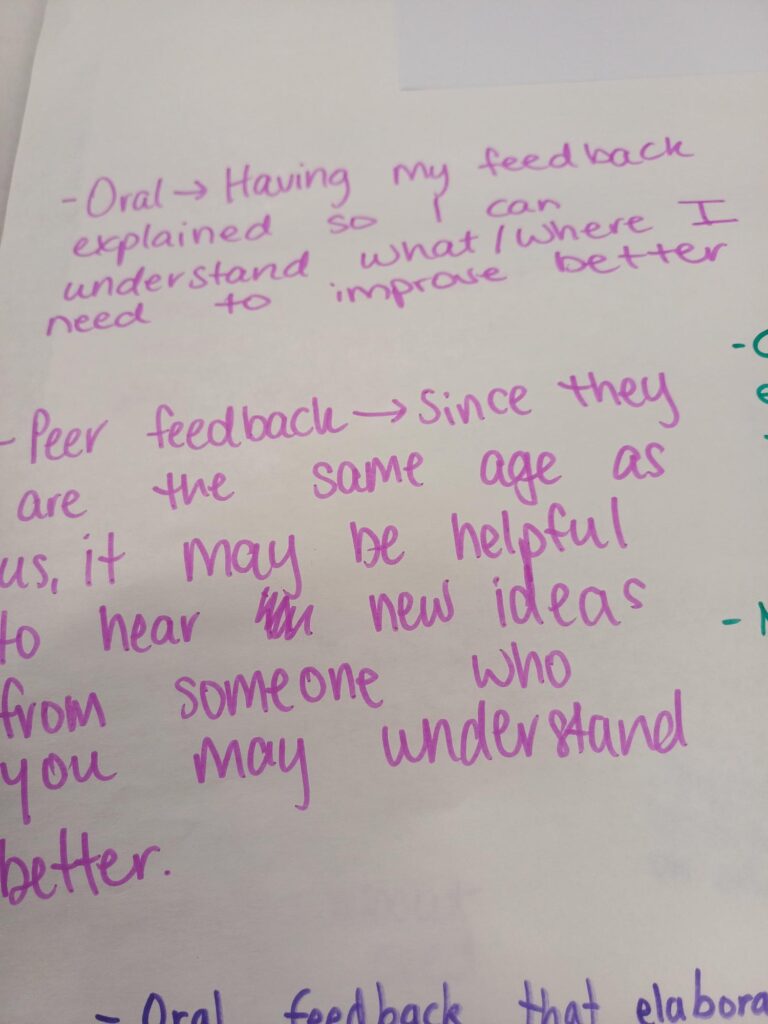 - Oral → Having my feedback
explained so I can
understand what/where I
need to improve better
- Peer feedback → Since they
are the same age as
us, it may be helpful
to hear new ideas
from someone who
you may understand
better.
- Oral feedback that elabora